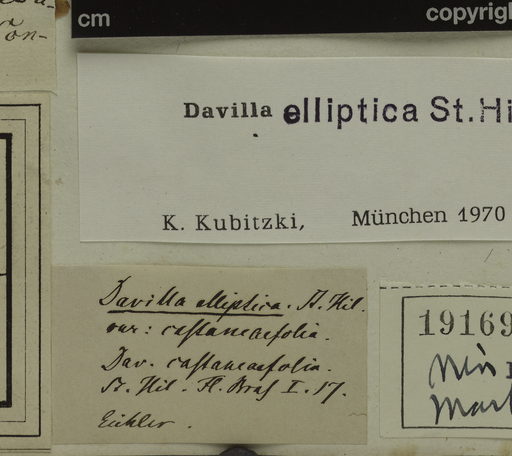 cm
copyrigh
on-
Davilla elliptica St.Hi
K. Kubitzki, München 1970
Davilla elliptica. A. Hil.
var: castaneaefolia.
Dav. castaneaefolia.
St. Hil. Fl. Bras I. 17.
Eichler.
19169